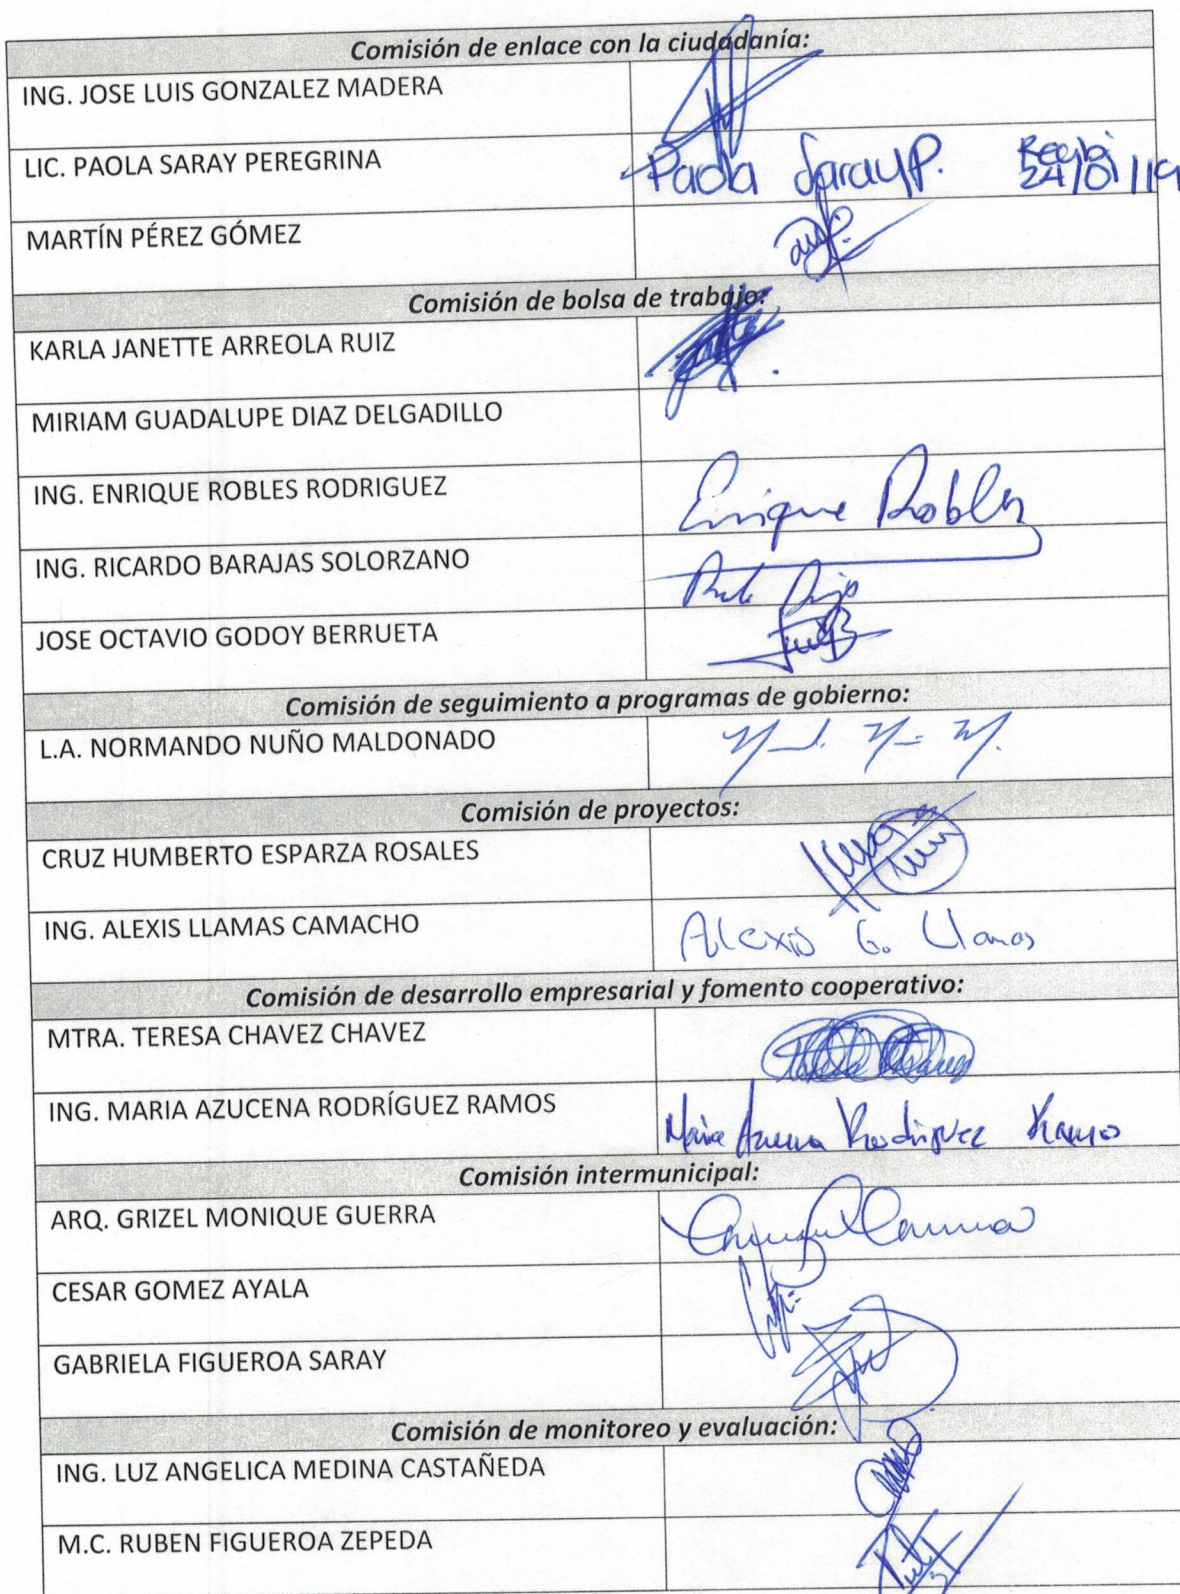 Comisión de enlace con la ciudadanía:
ING. JOSE LUIS GONZALEZ MADERA
LIC. PAOLA SARAY PEREGRINA Paola Saray P. Recibí
24/01/19
MARTÍN PÉREZ GÓMEZ
Comisión de bolsa de trabajo:
KARLA JANETTE ARREOLA RUIZ
MIRIAM GUADALUPE DIAZ DELGADILLO
ING. ENRIQUE ROBLES RODRIGUEZ Enrique Robles
ING. RICARDO BARAJAS SOLORZANO
JOSE OCTAVIO GODOY BERRUETA
Comisión de seguimiento a programas de gobierno:
L.A. NORMANDO NUÑO MALDONADO
Comisión de proyectos:
CRUZ HUMBERTO ESPARZA ROSALES
ING. ALEXIS LLAMAS CAMACHO Alexis G. Llamas
Comisión de desarrollo empresarial y fomento cooperativo:
MTRA. TERESA CHAVEZ CHAVEZ
ING. MARIA AZUCENA RODRÍGUEZ RAMOS Maria Azucena Rodriguez Ramos
Comisión intermunicipal:
ARQ. GRIZEL MONIQUE GUERRA
CESAR GOMEZ AYALA
GABRIELA FIGUEROA SARAY
Comisión de monitoreo y evaluación:
ING. LUZ ANGELICA MEDINA CASTAÑEDA
M.C. RUBEN FIGUEROA ZEPEDA